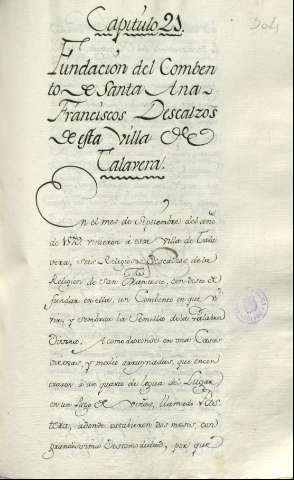 Capitulo 21.
304
Fundacion del Combento
de Santa Ana
Franciscos Descalzos
de esta Villa de
Talavera.
En el mes de Septiembre del año
de vinieron a esta Villa de Tala
vera, seis Religiosos Descalzos de la
Religion de san Francisco, con deseo de
fundar en ella, un Combento en que vi
vir, y sembrar la Semilla de la Palabra
Divina. Acomodaronse en unas Casas
y medio arruynadas, que encon
traron a un quarto de legua del Lugar
en un Pago de Viñas, llamado
adonde estubieron dos meses, con
grandissima Descomodidad, por que